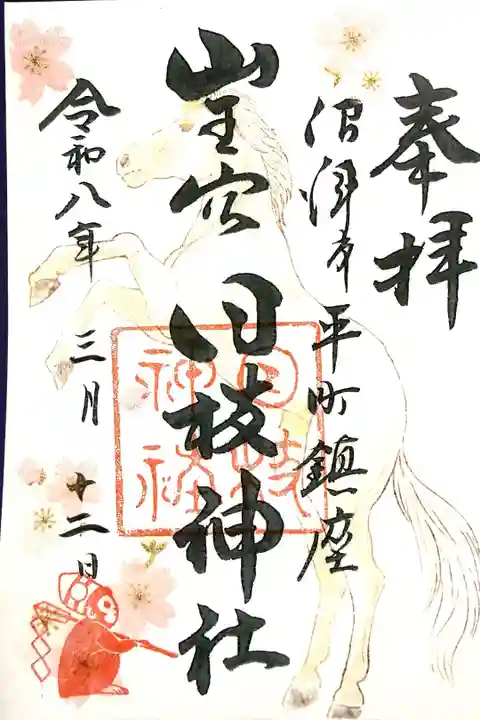 奉拝
沼津市平町鎮座
山王宮 日枝神社
日枝神社
令和八年 三月 十二日